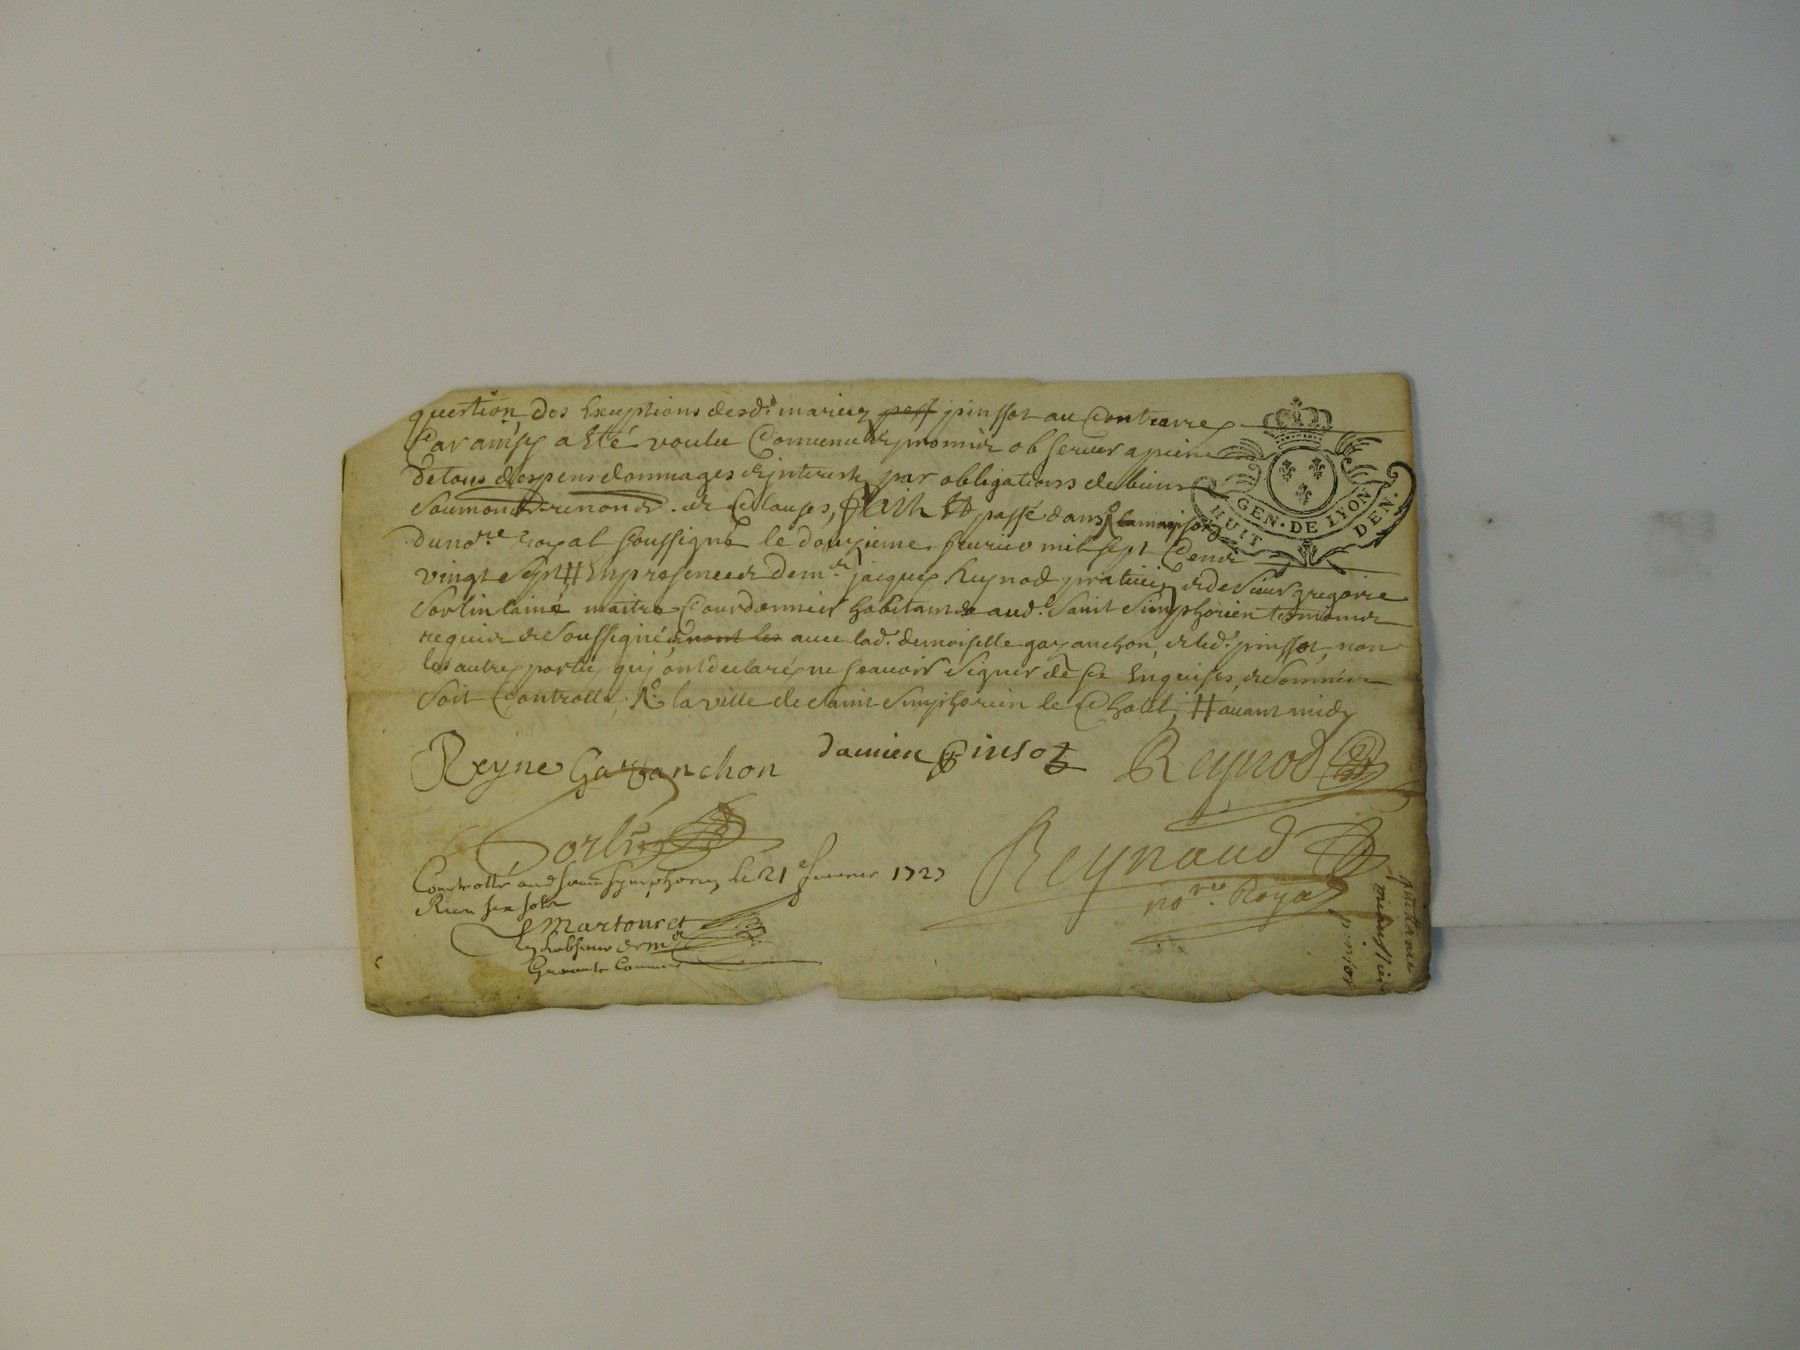 question, des Exeptions desd.s mariez peff pinssot au Contraire
Car ainsy a Eté voulu Convenu et promis observer a peine
de tous despens dommages et interests, par obligations de biens
Soumon.s renon.s et Clauses, fait et passé dans la maison
du no.re royal soussigné le douzieme fevrier mil sept Cent
vingt Sept # En presence de m.re jacques Reynod praticien et de Sieur gregoire
Sorlin lainé maitre Cordonnier habitants aud. Saint Simphorien temoins
requis et Soussignés, non les avec lad. demoiselle gayanchon, et led. pinssot, non
les autres parties quy ont declaré ne scavoir Signer de ce Enquises, et Sommées
Soit Controllé. la ville de Saint Simphorien le Chatel, # avant midy
Reyne Gayanchon
damien Pinsot
Reynod
Sorlin
Reynaud
no.re Royal
Controllé aud Saint Symphorien, le 21 fevrier 1727
Martouret
GEN · DE LYON
HUIT DEN.
quittance
pinsot